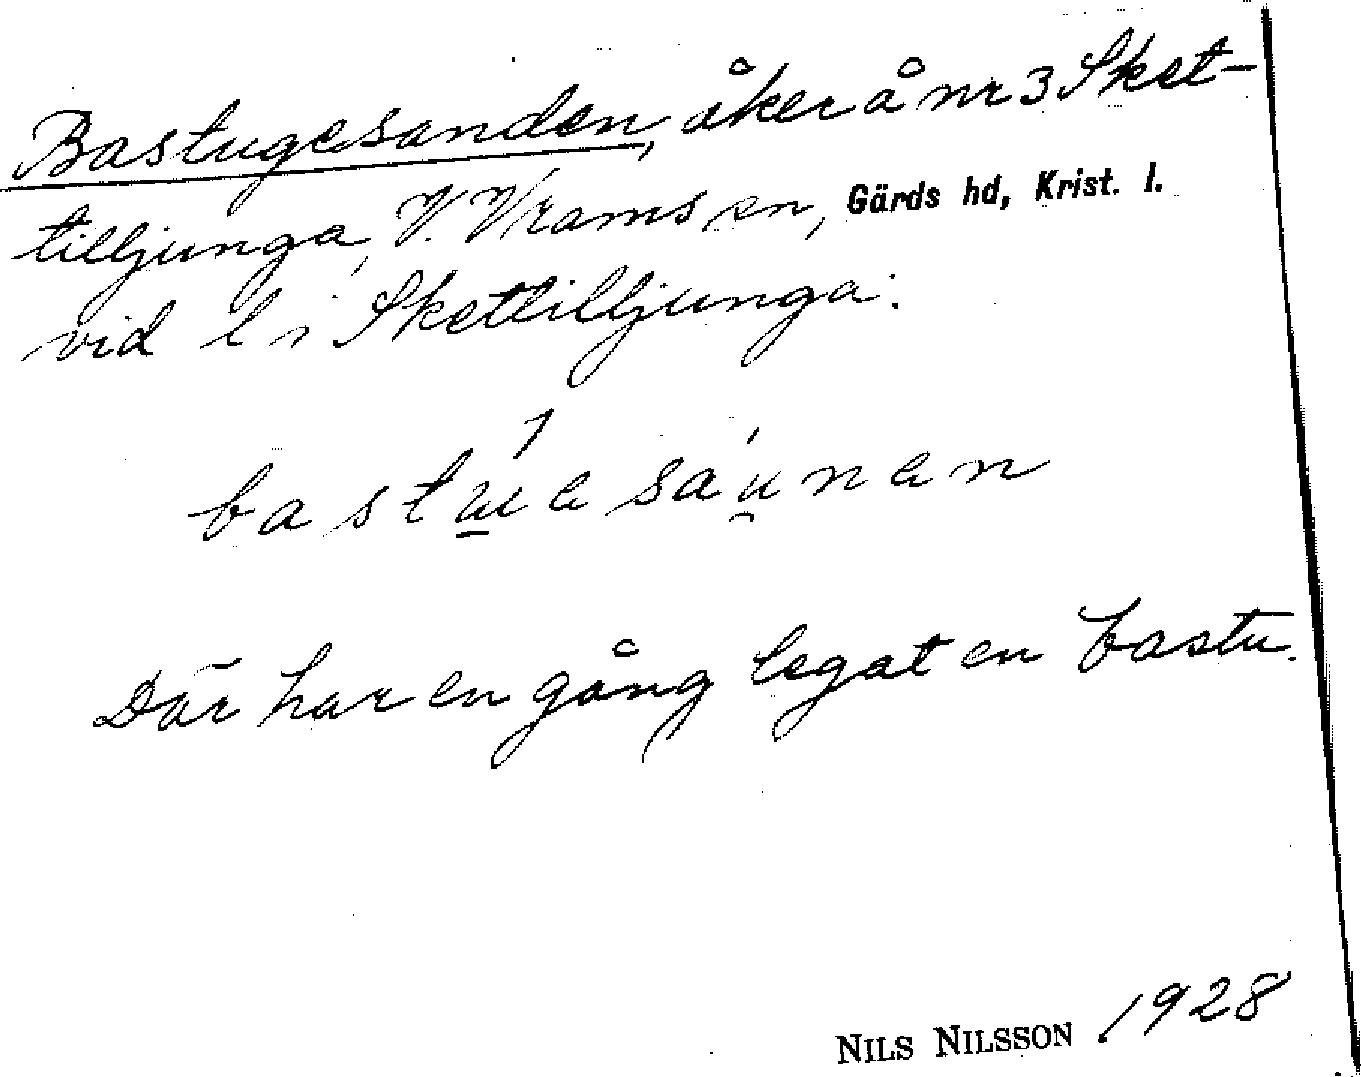 Bastugesanden, åker å nr 3 Sket-
tilljunga, V. Vrams sn, Gärds hd, Krist. l.
vid l i Skettilljunga.
bastuesaunen
Där har en gång legat en bastu.
NILS NILSSON. 1928